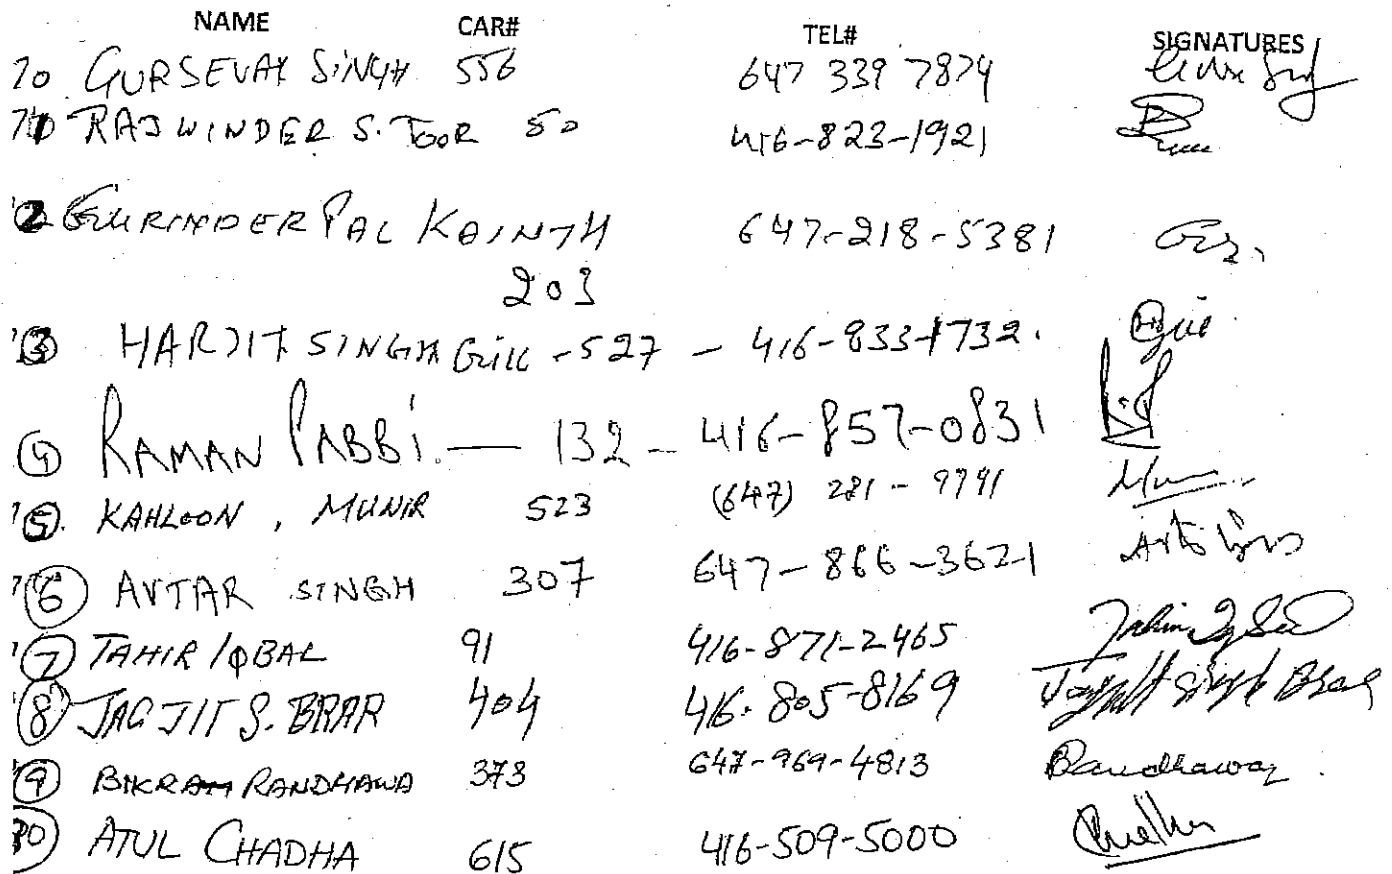 NAME CAR# TEL# SIGNATURES
70 GURSEVAK SINGH 556 647 339 7874
71 RAJWINDER S. TOOR 50 416-823-1921
2 GURINDER PAL KAINTH 647-218-5381
203
3 HARJIT SINGH GILL - 527 - 416-833-1732.
4 RAMAN PABBI. — 132 - 416-857-0831
5. KAHLOON, MUNIR 523 (647) 281-9791
76 AVTAR SINGH 307 647-866-3621
7 TAHIR IQBAL 91 416-871-2465 Tahir Iqbal
8 JAGJIT S. BRAR 404 416-805-8169 Jagjit Singh Brar
9 BIKRAM RANDHAWA 373 647-969-4813 Randhawa
80 ATUL CHADHA 615 416-509-5000